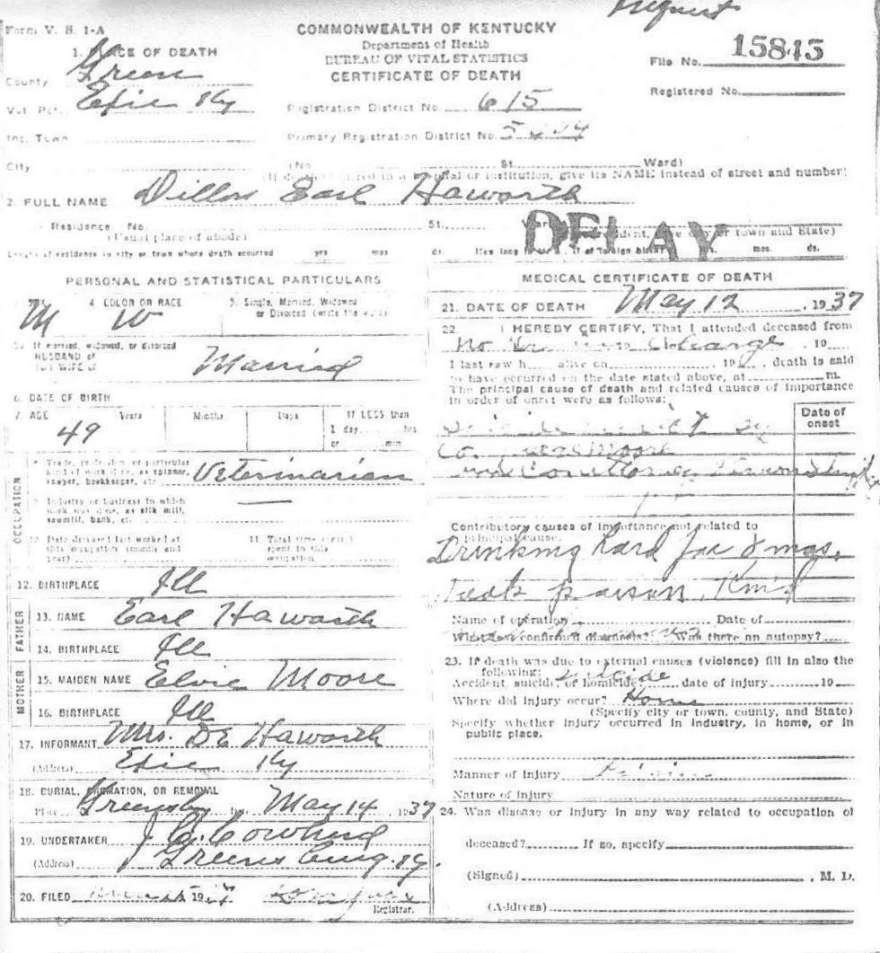 Form V. S. 1-A
COMMONWEALTH OF KENTUCKY
Department of Health
BUREAU OF VITAL STATISTICS
CERTIFICATE OF DEATH
File No. 15845
Registered No.
1. PLACE OF DEATH
County Green
Vot. Pct. Exie Ky
Registration District No. 615
Inc. Town
Primary Registration District No.
City (No. St. Ward)
(If death occurred in a hospital or institution, give its NAME instead of street and number)
2. FULL NAME Dillon Earl Haworth
Residence. No. St.
(Usual place of abode)
DELAY
Length of residence in city or town where death occurred yrs. mos. ds. How long in U. S., if of foreign birth? yrs. mos. ds.
PERSONAL AND STATISTICAL PARTICULARS
4. COLOR OR RACE 5. Single, Married, Widowed
or Divorced (write the word)
M W
If married, widowed, or divorced
HUSBAND of
(or) WIFE of Married
6. DATE OF BIRTH
7. AGE Years Months Days If LESS than
1 day hrs
or min
49
OCCUPATION
Trade, profession, or particular
kind of work done, as spinner,
sawyer, bookkeeper, etc. Veterinarian
Industry or business in which
work was done, as silk mill,
sawmill, bank, etc. —
10. Date deceased last worked at
this occupation (month and
year)
11. Total time (years)
spent in this
occupation
12. BIRTHPLACE Ill
FATHER
13. NAME Earl Haworth
14. BIRTHPLACE Ill
MOTHER
15. MAIDEN NAME Elvie Moore
16. BIRTHPLACE Ill
17. INFORMANT Mrs. D E Haworth
(Address) Exie Ky
18. BURIAL, CREMATION, OR REMOVAL
Place Greensburg May 14, 1937
19. UNDERTAKER
(Address) Greensburg, Ky.
20. FILED 19
Registrar.
MEDICAL CERTIFICATE OF DEATH
21. DATE OF DEATH May 12, 1937
22. I HEREBY CERTIFY, That I attended deceased from
No Dr. in charge, 19
I last saw h alive on 19 , death is said
to have occurred on the date stated above, at m.
The principal cause of death and related causes of importance
in order of onset were as follows:
Date of
onset
Contributory causes of importance not related to
principal cause:
Drinking hard for 8 mos.
Took poison
Name of operation Date of
What test confirmed diagnosis? Was there an autopsy?
23. If death was due to external causes (violence) fill in also the
following:
Accident, suicide, or homicide? suicide date of injury 19
Where did injury occur? Home
(Specify city or town, county, and State)
Specify whether injury occurred in industry, in home, or in
public place.
Manner of injury
Nature of injury
24. Was disease or injury in any way related to occupation of
deceased? If so, specify
(Signed) , M. D.
(Address)